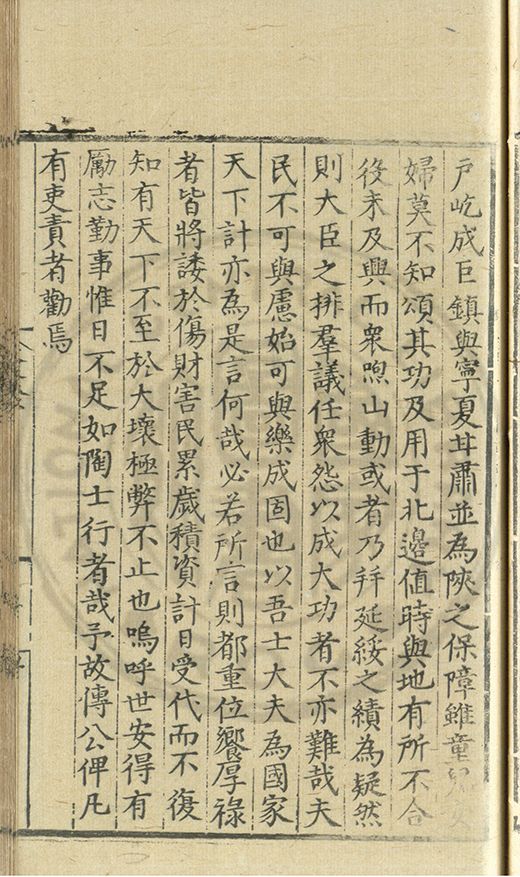 戸屹成巨鎮與寧夏甘肅並為陝之保障雖童兒
婦莫不知頌其功及用于北邊值時與地有所不合
役未及興而衆喣山動或者乃幷延綏之績為疑然
則大臣之排羣議任衆怨以成大功者不亦難哉夫
民不可與慮始可與樂成固也以吾士大夫為國家
天下計亦為是言何哉必若所言則都重位饗厚祿
者皆將諉於傷財害民累歲積資計日受代而不復
知有天下不至於大壞極弊不止也嗚呼世安得有
勵志勤事惟日不足如陶士行者哉予故傳公俾凡
有吏責者勸焉